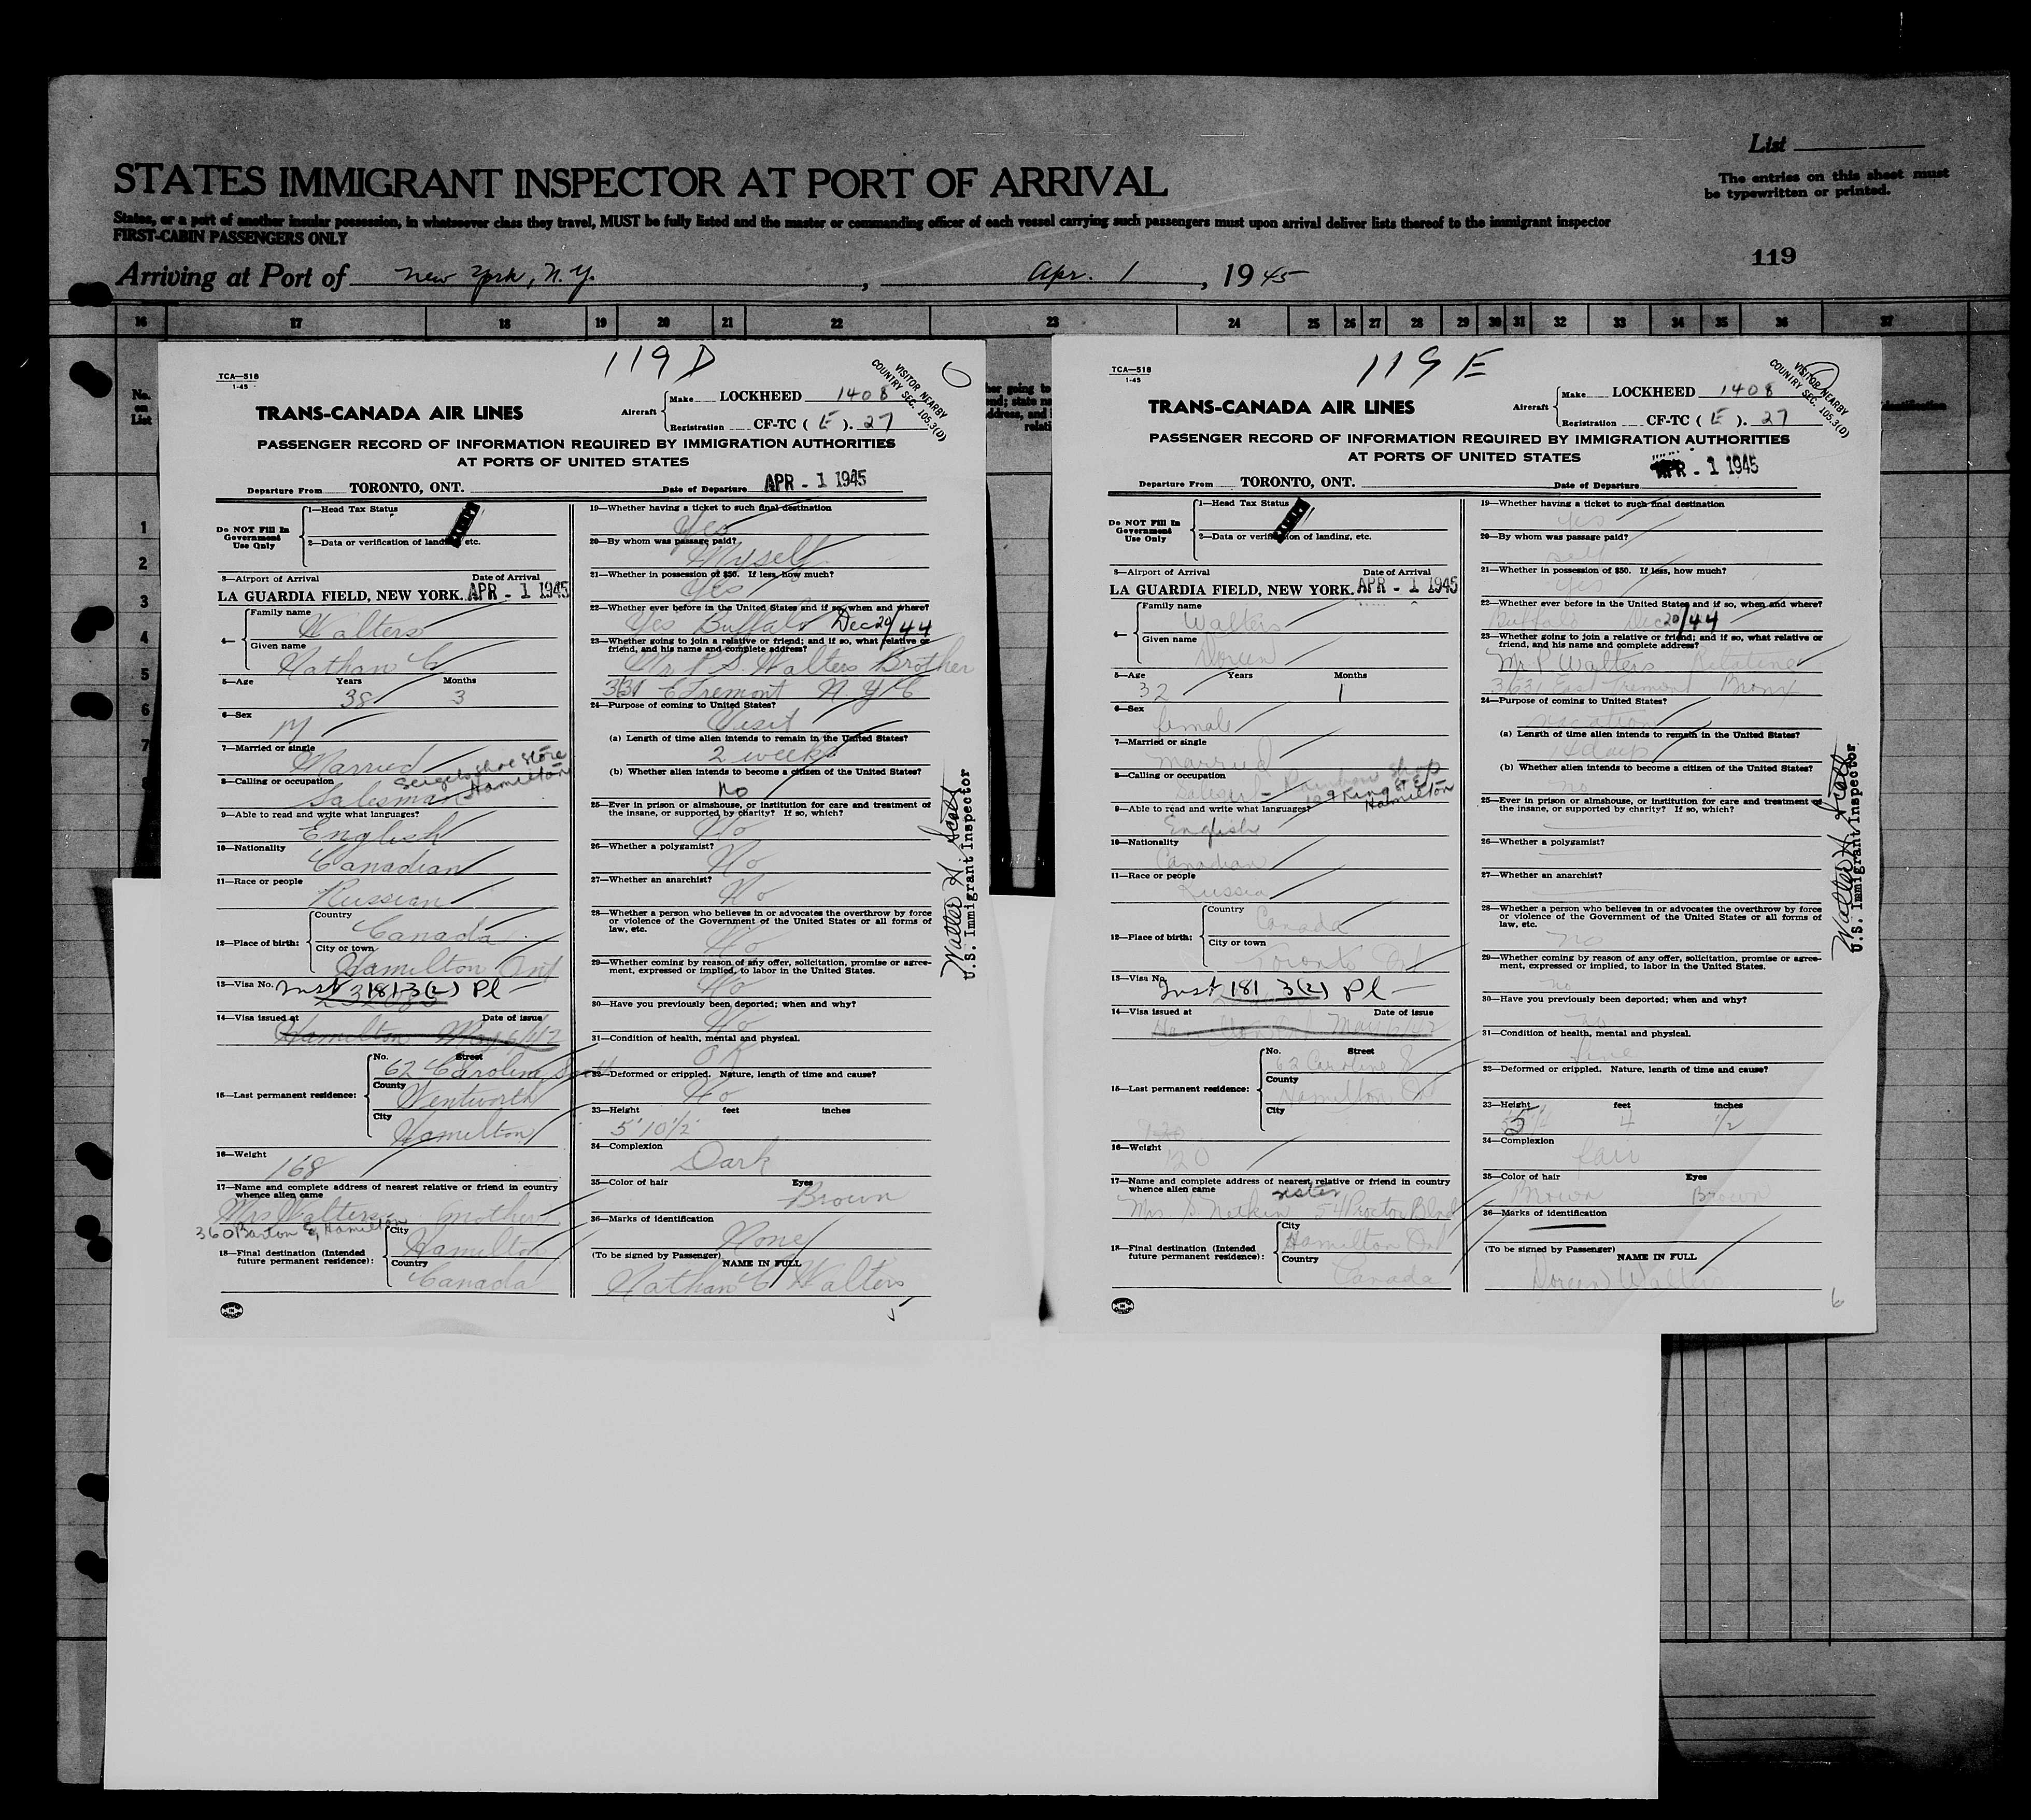 List
STATES IMMIGRANT INSPECTOR AT PORT OF ARRIVAL
The entries on this sheet must
be typewritten or printed.
States, or a port of another insular possession, in whatsoever class they travel, MUST be fully listed and the master or commanding officer of each vessel carrying such passengers must upon arrival deliver lists thereof to the immigrant inspector
FIRST-CABIN PASSENGERS ONLY
119
Arriving at Port of New York, N.Y., Apr. 1, 1945
16 17 18 19 20 21 22 23 24 25 26 27 28 29 30 31 32 33 34 35 36 37
No.
on
List
1
2
3
4
5
6
7
119 D
TCA—518
1-45
VISITOR NEARBY
COUNTRY SEC. 105.3(D)
TRANS-CANADA AIR LINES
Aircraft
Make LOCKHEED 1408
Registration CF-TC ( E ). 27
PASSENGER RECORD OF INFORMATION REQUIRED BY IMMIGRATION AUTHORITIES
AT PORTS OF UNITED STATES
Departure From TORONTO, ONT. Date of Departure APR - 1 1945
Do NOT Fill In
Government
Use Only
1—Head Tax Status
2—Data or verification of landing, etc.
3—Airport of Arrival Date of Arrival
LA GUARDIA FIELD, NEW YORK. APR - 1 1945
4—
Family name
Walters
Given name
Nathan C
5—Age Years Months
38 3
6—Sex
M
7—Married or single
Married
8—Calling or occupation
Salesman
Shoe Store
Hamilton
9—Able to read and write what languages?
English
10—Nationality
Canadian
11—Race or people
Russian
12—Place of birth:
Country
Canada
City or town
Hamilton Ont
13—Visa No. Inst 181 3(2) Pl
14—Visa issued at Date of issue
Hamilton May 6/42
15—Last permanent residence:
No. Street
62 Caroline
County
Wentworth
City
Hamilton
16—Weight
168
17—Name and complete address of nearest relative or friend in country
whence alien came
Mrs Walters mother
360 Barton E, Hamilton
18—Final destination (Intended
future permanent residence):
City
Hamilton
Country
Canada
19—Whether having a ticket to such final destination
Yes
20—By whom was passage paid?
Myself
21—Whether in possession of $50. If less, how much?
Yes
22—Whether ever before in the United States and if so, when and where?
Yes Buffalo Dec 20/44
23—Whether going to join a relative or friend; and if so, what relative or
friend, and his name and complete address?
Mr. P. S. Walters Brother
3631 E Tremont N.Y.C
24—Purpose of coming to United States?
Visit
(a) Length of time alien intends to remain in the United States?
2 weeks
(b) Whether alien intends to become a citizen of the United States?
No
25—Ever in prison or almshouse, or institution for care and treatment of
the insane, or supported by charity? If so, which?
No
26—Whether a polygamist?
No
27—Whether an anarchist?
No
28—Whether a person who believes in or advocates the overthrow by force
or violence of the Government of the United States or all forms of
law, etc.
No
29—Whether coming by reason of any offer, solicitation, promise or agree-
ment, expressed or implied, to labor in the United States.
No
30—Have you previously been deported; when and why?
No
31—Condition of health, mental and physical.
OK
32—Deformed or crippled. Nature, length of time and cause?
No
33—Height feet inches
5' 10 1/2
34—Complexion
Dark
35—Color of hair Eyes
Brown
36—Marks of identification
None
(To be signed by Passenger) NAME IN FULL
Nathan C Walters
Walter H. Scott
U.S. Immigrant Inspector
119 E
TCA—518
1-45
VISITOR NEARBY
COUNTRY SEC. 105.3(D)
TRANS-CANADA AIR LINES
Aircraft
Make LOCKHEED 1408
Registration CF-TC ( E ). 27
PASSENGER RECORD OF INFORMATION REQUIRED BY IMMIGRATION AUTHORITIES
AT PORTS OF UNITED STATES
Departure From TORONTO, ONT. Date of Departure APR - 1 1945
Do NOT Fill In
Government
Use Only
1—Head Tax Status
2—Data or verification of landing, etc.
3—Airport of Arrival Date of Arrival
LA GUARDIA FIELD, NEW YORK. APR - 1 1945
4—
Family name
Walters
Given name
Doreen
5—Age Years Months
32 1
6—Sex
female
7—Married or single
married
8—Calling or occupation
Shop
King St E
Hamilton
9—Able to read and write what languages?
English
10—Nationality
Canadian
11—Race or people
Russia
12—Place of birth:
Country
Canada
City or town
Toronto Ont
13—Visa No. Inst 181 3(2) Pl
14—Visa issued at Date of issue
May 6/42
15—Last permanent residence:
No. Street
62 Caroline S
County
Hamilton Ont
City
16—Weight
120
17—Name and complete address of nearest relative or friend in country
whence alien came
sister
Mrs S Netkin 54 Proctor Blvd
18—Final destination (Intended
future permanent residence):
City
Hamilton Ont
Country
Canada
19—Whether having a ticket to such final destination
yes
20—By whom was passage paid?
self
21—Whether in possession of $50. If less, how much?
yes
22—Whether ever before in the United States and if so, when and where?
Buffalo Dec 20/44
23—Whether going to join a relative or friend; and if so, what relative or
friend, and his name and complete address?
Mr P Walters Relative
3631 East Tremont Bronx
24—Purpose of coming to United States?
vacation
(a) Length of time alien intends to remain in the United States?
14 days
(b) Whether alien intends to become a citizen of the United States?
no
25—Ever in prison or almshouse, or institution for care and treatment of
the insane, or supported by charity? If so, which?
26—Whether a polygamist?
27—Whether an anarchist?
28—Whether a person who believes in or advocates the overthrow by force
or violence of the Government of the United States or all forms of
law, etc.
no
29—Whether coming by reason of any offer, solicitation, promise or agree-
ment, expressed or implied, to labor in the United States.
no
30—Have you previously been deported; when and why?
no
31—Condition of health, mental and physical.
fine
32—Deformed or crippled. Nature, length of time and cause?
33—Height feet inches
5 4 1/2
34—Complexion
fair
35—Color of hair Eyes
Brown Brown
36—Marks of identification
(To be signed by Passenger) NAME IN FULL
Doreen Walters
6
Walter H. Scott
U.S. Immigrant Inspector